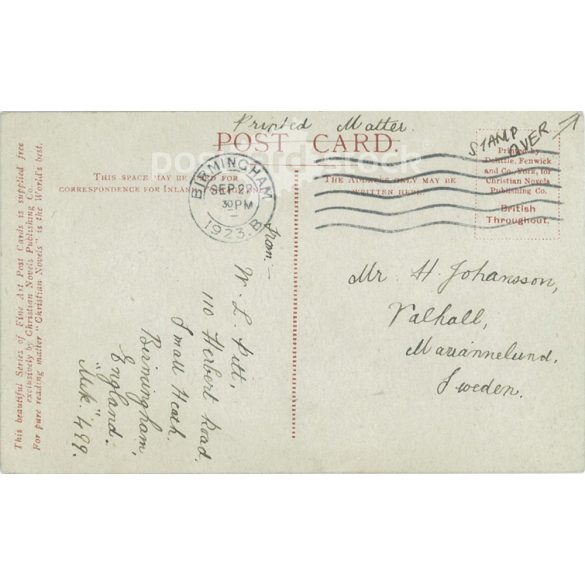 Printed Matter.
POST CARD.
STAMP OVER
THIS SPACE MAY BE USED FOR
CORRESPONDENCE FOR INLAND
THE ADDRESS ONLY MAY BE
WRITTEN HERE
Printed by
Delittle, Fenwick
and Co., York, for
Christian Novels
Publishing Co.
British
Throughout.
BIRMINGHAM
SEP 22
30PM
1923.B
postcard stock
From:-
W. L. Pitt,
110 Herbert Road,
Small Heath,
Birmingham,
England.
"Muk" 499.
Mr H. Johansson,
Valhall,
Mariannelund,
Sweden.
This beautiful Series of Fine Art Post Cards is supplied free
exclusively by Christian Novels Publishing Co.
For pure reading matter "Christian Novels" is the World's best.